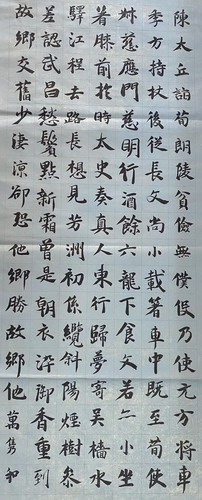 陳太丘詣荀朗陵貧儉無僕役乃使元方將車
季方持杖後從長文尚小載箸車中既至荀使
叔慈應門慈明行酒餘六龍下食文若亦小坐
着膝前於時太史奏真人東行歸夢寄吳檣水
驛江程去路長想見芳洲初係纜斜陽煙樹參
差認武昌愁鬢點新霜曾是朝衣染御香重到
故鄉交舊少淒涼卻恐他鄉勝故鄉他萬和